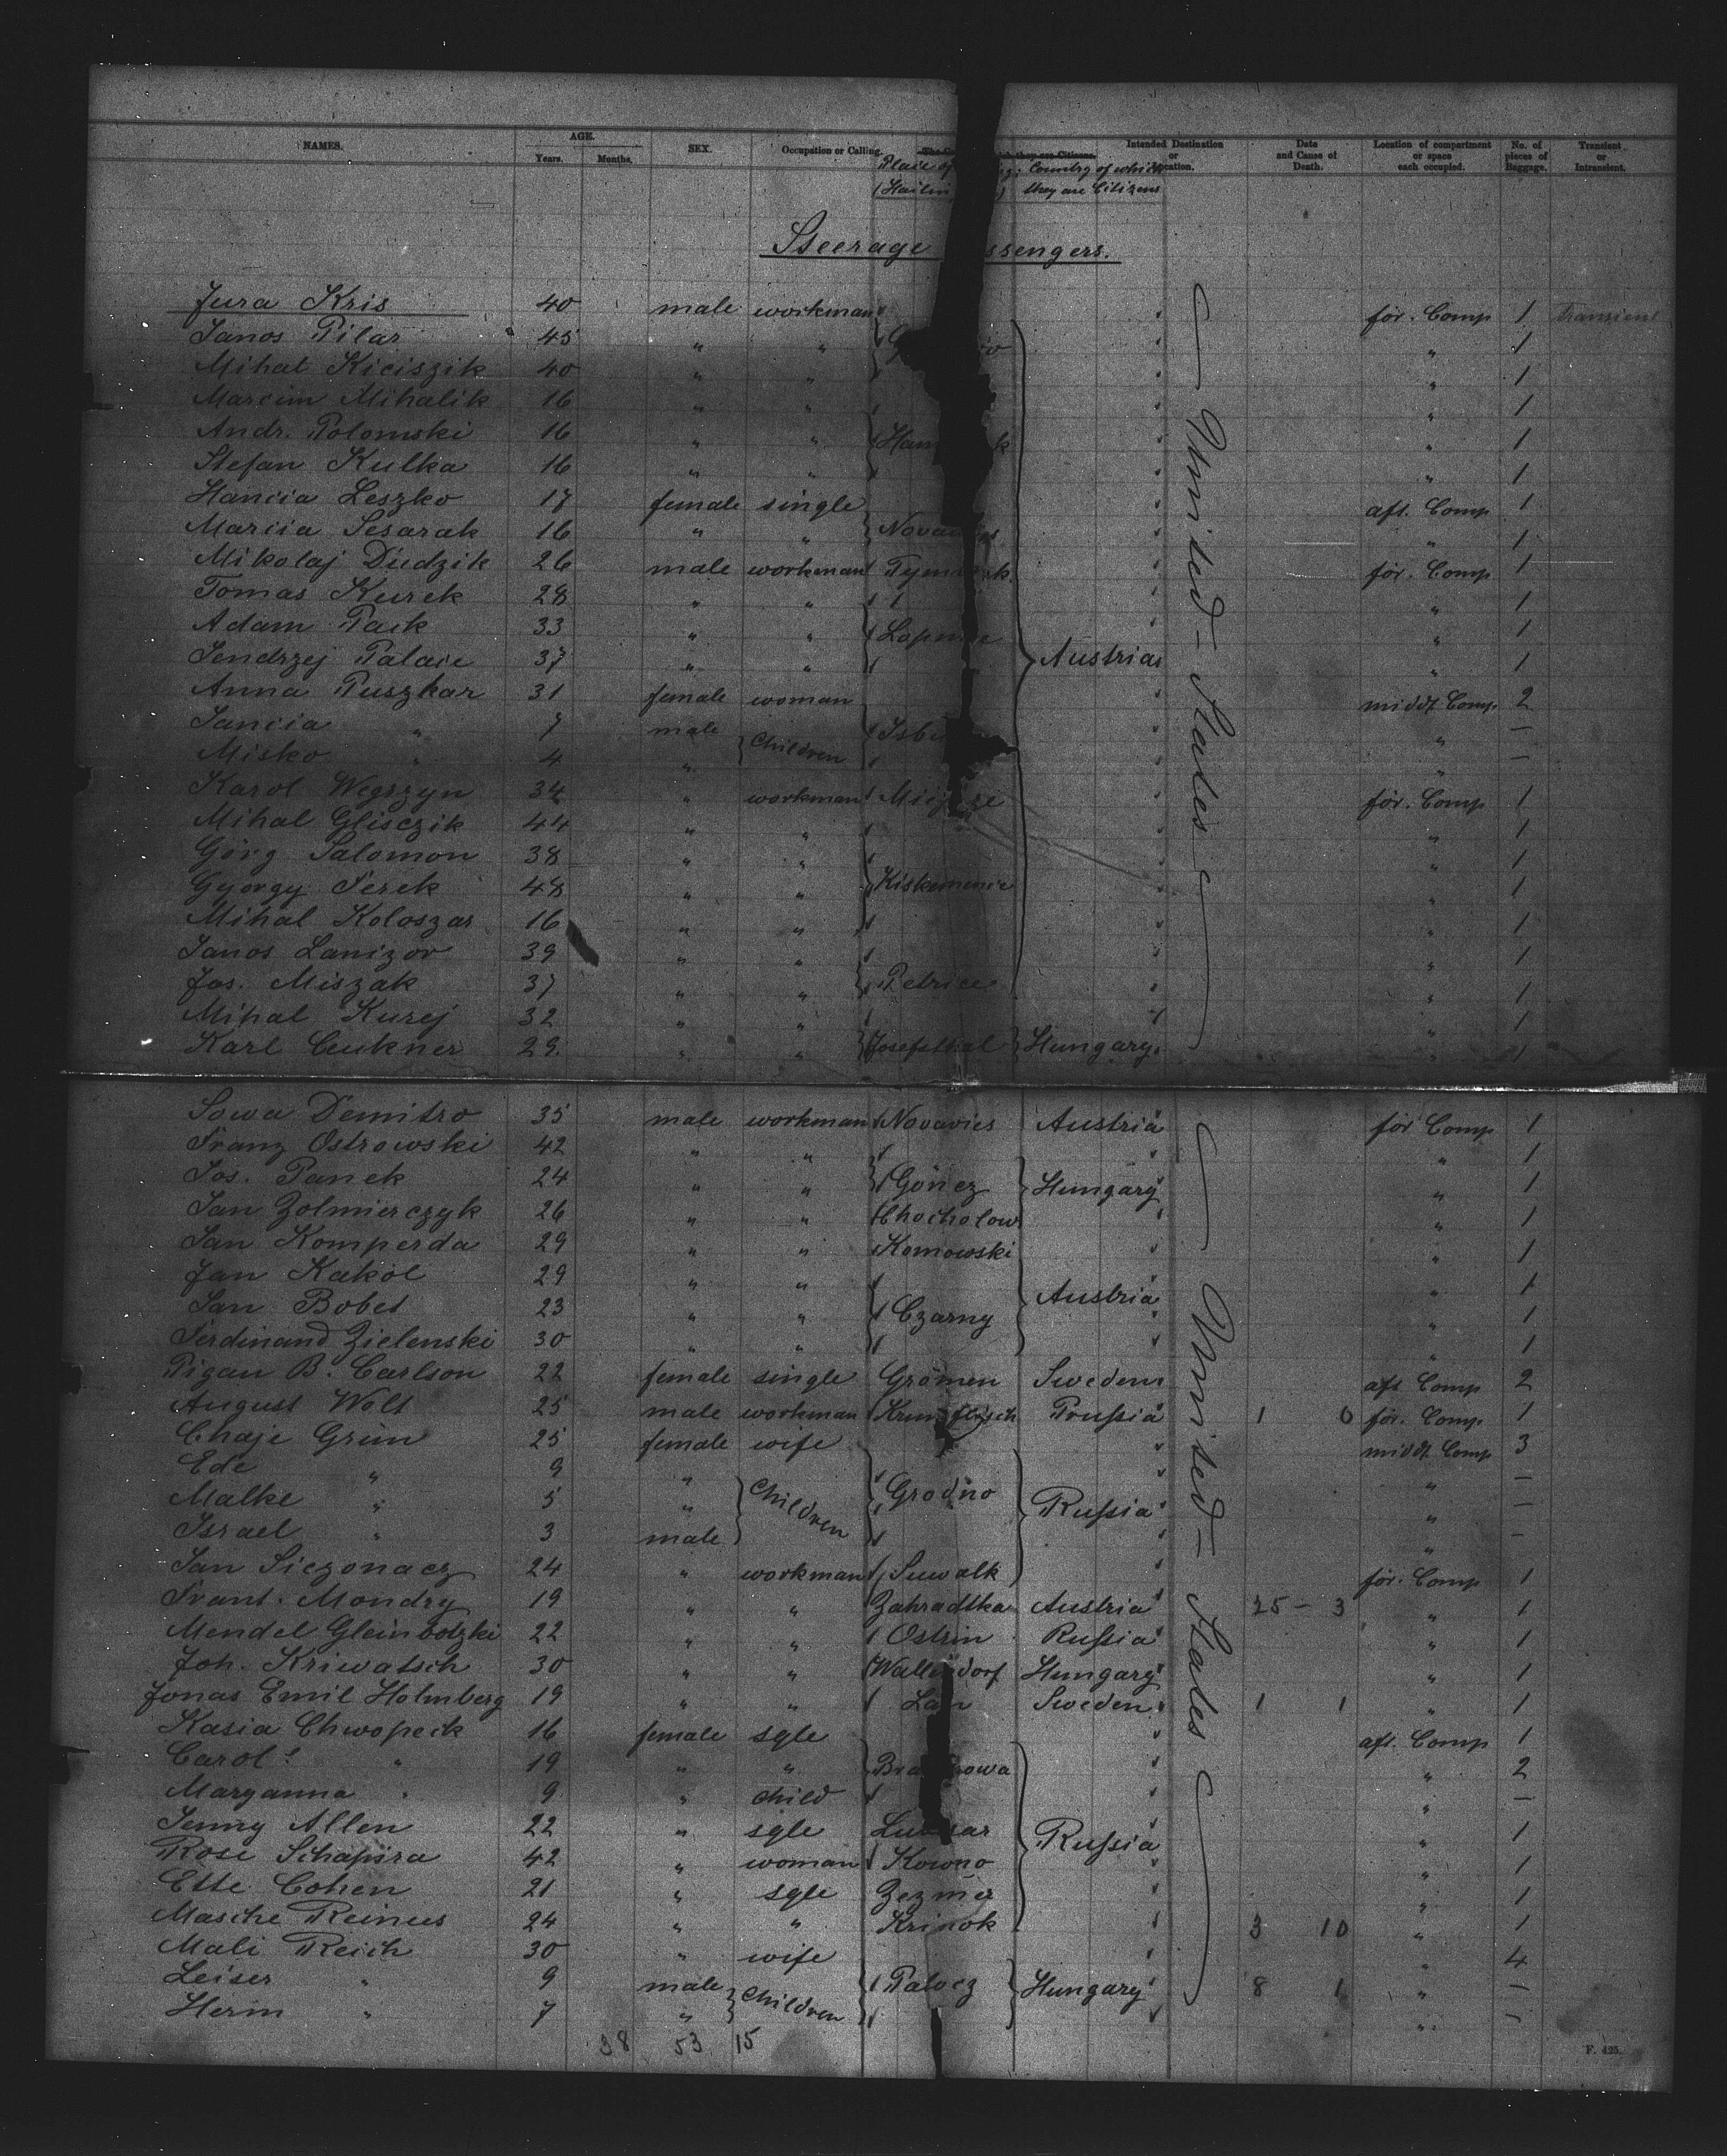 NAMES. AGE. Years. Months. SEX. Occupation or Calling. Intended Destination or Location. Date and Cause of Death. Location of compartment or space each occupied. No. of pieces of Baggage. Transient or Intransient.
Place of Country of which
they are Citizens
Steerage ssengers.
Jura Kris 40 male workman för. Comp 1 Transient
Janos Pilar 45 " " " 1
Mihal Kiciszik 40 " " " 1
Marcim Mihalik 16 " " " 1
Andr. Polomski 16 " " Ham k " 1
Stefan Kulka 16 " " " 1
Hancia Leszko 17 female single aft. Comp 1
Marcia Sesarak 16 " " Nova " 1
Mikolaj Dudzik 26 male workman Tym k. för. Comp 1
Tomas Kurek 28 " " " 1
Adam Pack 33 " " Lopu e " 1
Jendrzej Palacie 37 " " Austria " 1
Anna Puszkar 31 female woman middl. Comp 2
Jancia " 7 male Children Isb " —
Misko " 4 " " —
Karol Wegszyn 34 " workman för. Comp 1
Mihal Glisczik 44 " " " 1
Görg Salomon 38 " " " 1
György Serek 48 " " Kiskemencie " 1
Mihal Koloszar 16 " " " 1
Janos Lanizor 39 " " " 1
Jos. Miszak 37 " " Petrice " 1
Mihal Kurej 32 " " " 1
Karl Ceukner 29. " " Josefsthal Hungary " 1
United-States
Sowa Demitro 35 male workman Novavies Austria för Comp 1
Franz Ostrowski 42 " " " 1
Jos. Panek 24 " " Göncz Hungary " 1
Jan Zolmierczyk 26 " " Chocholow " 1
Jan Komperda 29 " " Komowski " 1
Jan Kakol 29 " " Austria " 1
Jan Bobet 23 " " Czarny " 1
Ferdinand Zielenski 30 " " " 1
Pigau B. Carlson 22 female single Grömen Sweden aft Comp 2
August Wolt 25 male workman Prussia 1 0 för. Comp 1
Chaje Grün 25 female wife middl. Comp 3
Ede " 9 " Children Grodno " —
Malke " 5 " Russia " —
Israel " 3 male " —
Jan Siczonacz 24 " workman Suwalk för. Comp 1
Frant. Mondry 19 " " Zahradtka Austria 25 — 3 " 1
Mendel Gleinbotzki 22 " " Ostrin Russia " 1
Joh. Kriwatsch 30 " " Wall dorf Hungary " 1
Jonas Emil Holmberg 19 " " Sweden 1 1 " 1
Kasia Chwopeck 16 female sgle aft. Comp 1
Carol. " 19 " " Bra owa " 2
Maryanna " 9 " child " —
Jenny Allen 22 " sgle Russia " 1
Rose Schapira 42 " woman Kowno " 1
Ette Cohen 21 " sgle Zezmer " 1
Masche Reinus 24 " " Krinok 3 10 " 1
Mali Reich 30 " wife " 4
Leiser " 9 male Children Palocz Hungary 8 1 " —
Herm " 7 " " —
United-States
38 53 15
F. 425.